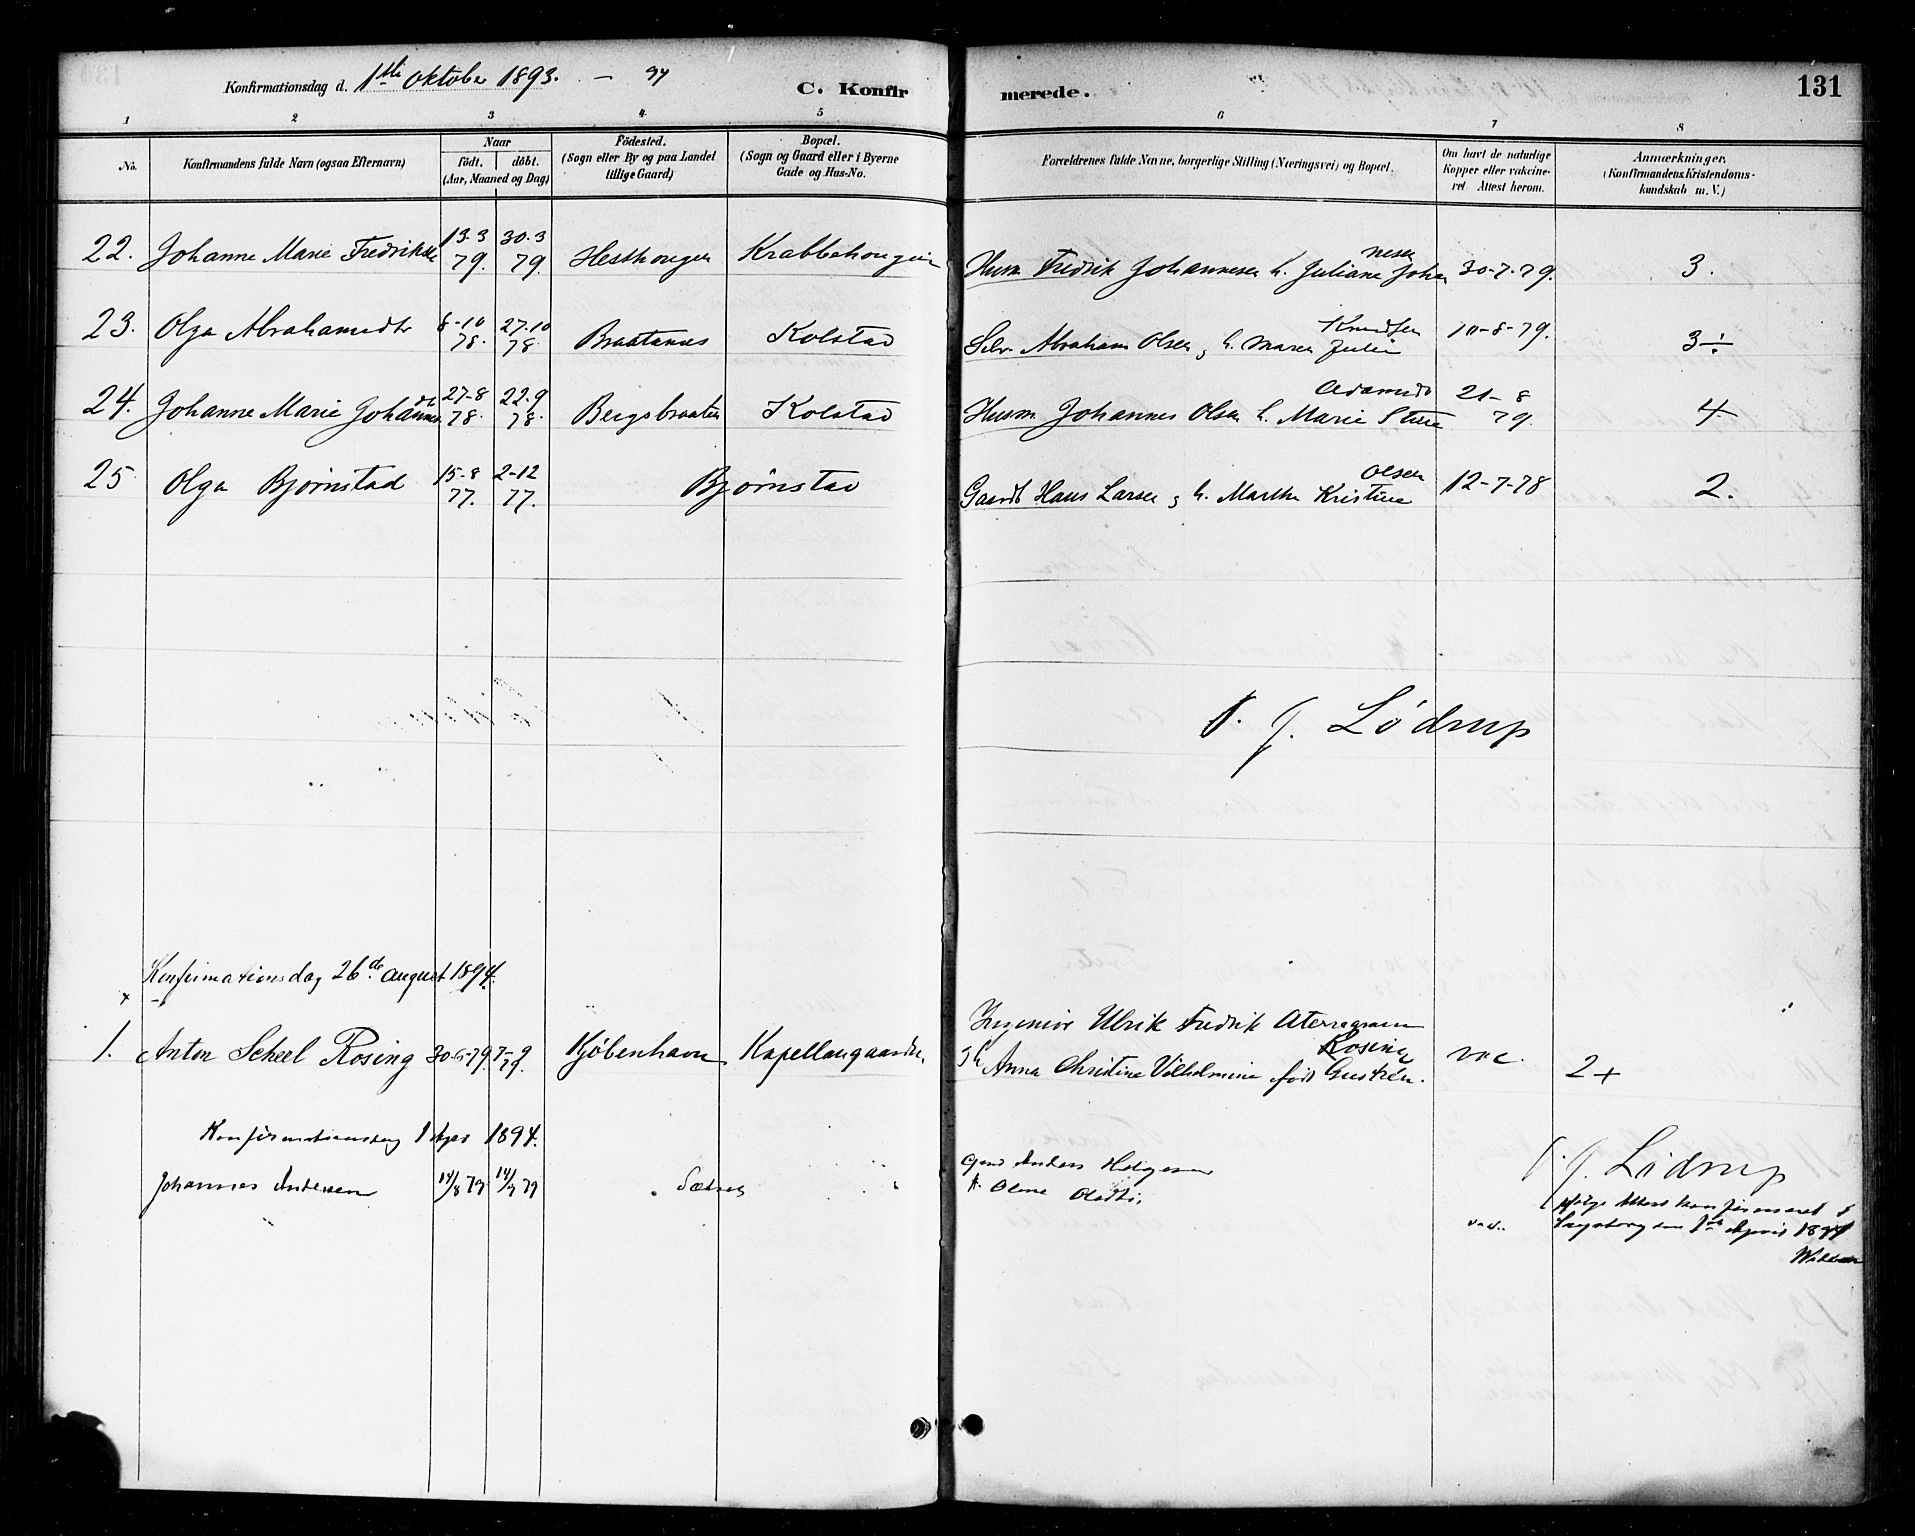 Konfirmationsdag d. 1ste Oktober 1893. – 94
C. Konfirmerede.
131
1 2 3 4 5 6 7 8
No.
Konfirmandens fulde Navn (ogsaa Efternavn)
Naar
födt. döbt.
(Aar, Maaned og Dag)
Födested.
(Sogn eller By og paa Landet
tillige Gaard)
Bopæl.
(Sogn og Gaard eller i Byerne
Gade og Hus-No.
Forældrenes fulde Navne, borgerlige Stilling (Næringsvei) og Bopæl.
Om havt de naturlige
Kopper eller vakcine-
ret. Attest herom.
Anmærkninger.
(Konfirmandens Kristendoms-
kundskab m. V.)
22. Johanne Marie Fredriksd 13.3 79. 30.3 79. Hesthougen Krabbehougen Husm Fredrik Johannesen h. Juliane Johannesen 30-7-79. 3.
23. Olga Abrahamsdtr 8-10 78. 27.10 78. Braatenes Kolstad Selv. Abraham Olsen og h. Maren Julie Knudsen 10-8-79. 3÷
24. Johanne Marie Johannesdtr 27-8 78. 22.9 78. Bergsbraaten Kolstad Husm Johannes Olsen h. Marie Stine Adamsdt 21-8 79. 4
25 Olga Bjørnstad 15-8 77. 2-12 77. Bjørnstad Gaardb Hans Larsen og h. Marthe Kristine Olsen 12-7-78 2.
J. Lødrup
Konfirmationsdag 26de august 1894.
1. Anton Scheel Rosing 30-6-79. 7-9 79. Kjøbenhavn Kapellangaarden
Ingeniør Ulrik Fredrik Rosing
og h Anna Christine Vilhelmine født vac. 2+
Konfirmationsdag 1 Apr 1894.
J. Lødrup
Johannes Andersen 14/8 79 14/9 79 Sætres
Gmd Anders Helgesen
h. Olene Olsdtr.
vac.
ifølge Attest konfirmeret i
den 1ste April 1894